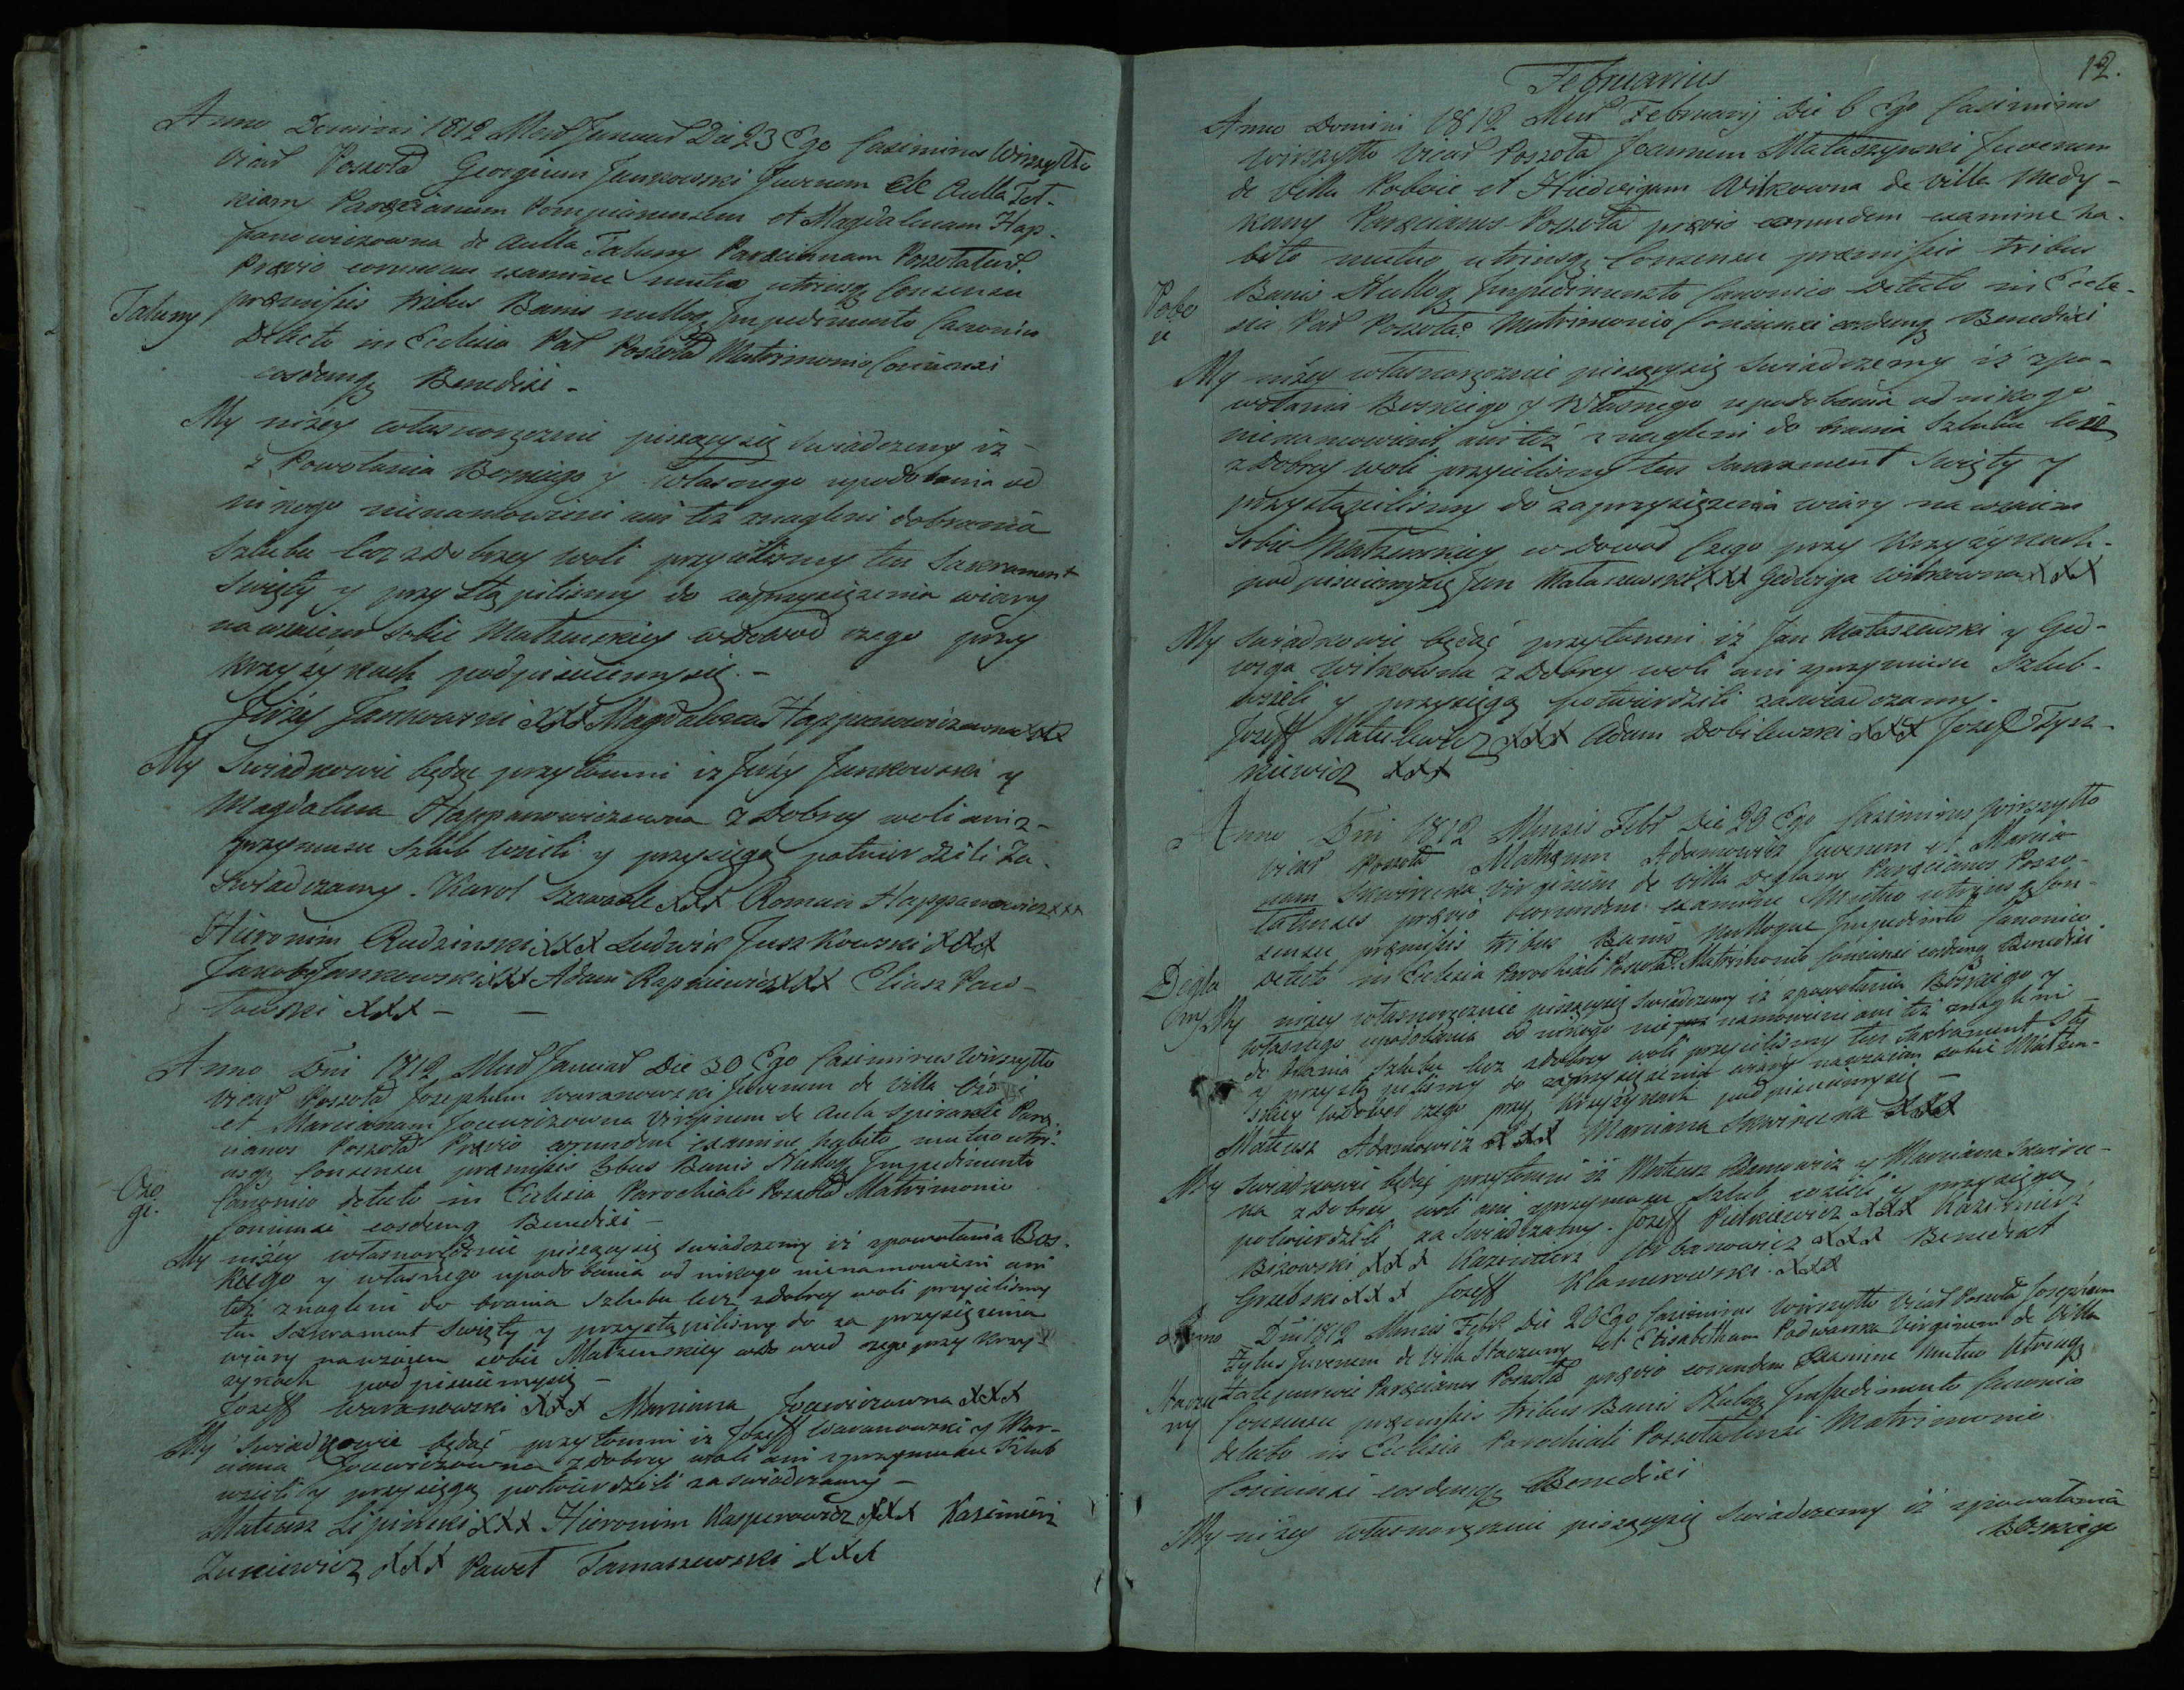 Anno Domini 1812 Mens Januar Die 23 Ego Casimirus Wirszytto
Vicar Poszolat Georgium Jankowski Juvenem de Aulla Tet-
kiam Paroecianum Pompianensem et Magdalenam Hap-
panowiczowna de Aulla Taluny Paroeciannam Poszolatens.
Prævio eorundem examine mutuo utriusq Consensu
Taluny
præmissis tribus Banis nulloq Impedimento Canonico
Detecto in Eclesia Par Poszolat Matrimonio Coniunxi
eosdemq Benedixi -
My niżey własnoręcznie piszący się swiadczemy iż -
z Powołania Boskiego y Własnego upodobania od
nikogo nienamowieni ani też znagleni do brania
Szlubu lecz zdobrey woli przyieliśmy ten Sakrament
Swięty y przystąpiliśmy do zaprzysięzenia wiary
nawzaiem sobie Małzenskiey wdowod czego przy
Krzyżykach podpisuiemy się. -
Jérzy Jankowski XXX Magdalena Happanowiczowna XXX
My Swiadkowie będąc przytomni iż Jerzy Jankowski y
Magdalena Happanowiczowna z Dobrey woli ani z -
przymusu Szlub wzieli y przysięgą potwierdzili Za-
Swiadczamy. Karol XXX Roman Happanowicz XXX
Hieronim Rudzinski XXX Ludwik Juszkowski XXX
Jakob Jankowski XXX Adam Rapkiewicz XXX Eliasz Paw-
łowski XXX - -
Anno Dni 1812 Mens Januar Die 30 Ego Casimirus Wirszytto
Vicar Poszolat Josephum Waranowski Juvenem de Villa
et Marciannam Jocewiczowna Virginem de Aula Paroe-
cianos Poszolat Prævio eorundem examine habito mutuo utri-
usq Consensu præmissis 3bus Banis Nulloq Impedimento
Ożo
gi.
Canonico detecto in Eclesia Parochiali Poszolat Matrimonio
Coniunxi eosdemq Benedixi -
My niżey własnoręcznie piszący się swiadczemy iż zpowołania Bos-
kiego y własnego upodobania od nikogo nienamowieni ani
też znagleni do brania Szlubu lecz zdobrey woli przyieliśmy
ten Sakrament Swięty y przystąpiliśmy do zaprzysięzenia
wiary nawzaiem sobie Małzenskiey wdowod czego przy Krzy-
zykach podpisuiemy się -
Józeff Waranowski XXX Marcianna Jocewiczowna XXX
My Swiadkowie będąc przytomni iz Józeff Waranowski y Mar-
cianna Jocewiczowna zdobrey woli ani zprzymusu Szlub
wzieli y przysięgą potwierdzili zaswiadczamy -
Mateusz Lipinski XXX Hieronim Kasperowicz XXX Kazimierz
Zuniewicz XXX Paweł Tamaszewski XXX
12.
Februarius
Anno Domini 1812 Mens Februarij Die 6 Ego Casimirus
Wirszytto Vicar Poszolat Joannem Mataszewski Juvenem
de Villa Poboie et Hedvigam Witkowna de Villa Medy-
kany Paroecianos Poszolat prævio eorundem examine ha-
bito mutuo utriusq Consensu præmissis tribus
Pobo
ie
Banis Nulloq Impedimento Canonico Detecto in Ecle-
sia Par Poszolat Matrimonio Coniunxi eosdemq Benedixi
My niżey własnoręcznie piszący się Swiadczemy iż zpo-
wołania Boskiego y Własnego upodobania od nikogo
nienamowieni ani też znagleni do brania Szlubu lecz
zdobrey woli przyieliśmy ten Sakrament Swięty y
przystąpiliśmy do zaprzysięzenia wiary nawzaiem
Sobie Małzenskiey w dowod Czego przy Krzyżykach
podpisuiemy się Jan Mataszewski XXX Jedwiga Witkowna XXX
My Swiadkowie będąć przytomni iż Jan Mataszewski y Jed-
wiga Witkowna z Dobrey woli ani zprzymusu Szlub
wzieli y przysięgą potwierdzili zaswiadczamy.
Jozeff Matulewicz XXX Adam Dobilewski XXX Jozeff Tysz-
kiewicz XXX
Anno Dni 1812 Mensis Febr Die 20 Ego Casimirus Wirszytto
Vicar Poszolat Matheum Adamowicz Juvenem et Marcia-
nam Skwirecka Virginem de Villa Deglany Paroecianos Poszo-
latenses prævio eorundem examine Mutuo utriusq Con-
sensu præmissis tribus Banis Nulloque Impedimto Canonico
Degla
ny
detecto in Eclesia Parochiali Poszolat Matrimonio Coniunxi eosdemq Benedixi
My niżey własnoręcznie piszący się Swiadczemy iż zpowołania Boskiego y
własnego upodobania od nikogo nie namowieni ani też znagleni
do brania Szlubu lecz zdobrey woli przyieliśmy ten Sakrament Sty
y przystąpiliśmy do zaprzysięzenia wiary nawzaiem sobie Małzen-
skiey wdowod czego przy Krzyżykach podpisuiemy się -
Mateusz Adamowicz XXX Marcianna Skwirecka XXX
My Swiadkowie będąc przytomni iż Mateusz Adamowicz y Marcianna Skwirec-
ka z Dobrey woli ani zprzymusu Szlub wzieli y przysięgą
potwierdzili zaswiadczamy. Jozeff Pietkiewicz XXX Kazimierz
Bizowski XXX Kazimierz Urbanowicz XXX Benedykt
Grzebski XXX Jozeff Klamerowski XXX
Anno Dni 1812 Mensis Febr Die 20 Ego Casimirus Wirszytto Vicar Poszolat Josephum
Zylus Juvenem de Villa Staczuny et Elisabetham Podwarska Virginem de Villa
Staczu
ny
Paroecianos Poszolat prævio eorundem Examine Mutuo Utriusq
Consensu præmissis tribus Banis Nulloq Impedimento Canonico
detecto in Eclesia Parochiali Poszolatensi Matrimonio
Coniunxi eosdemq Benedixi
My niżey własnoręcznie piszący się Swiadczemy iż zpowołania
Boskiego